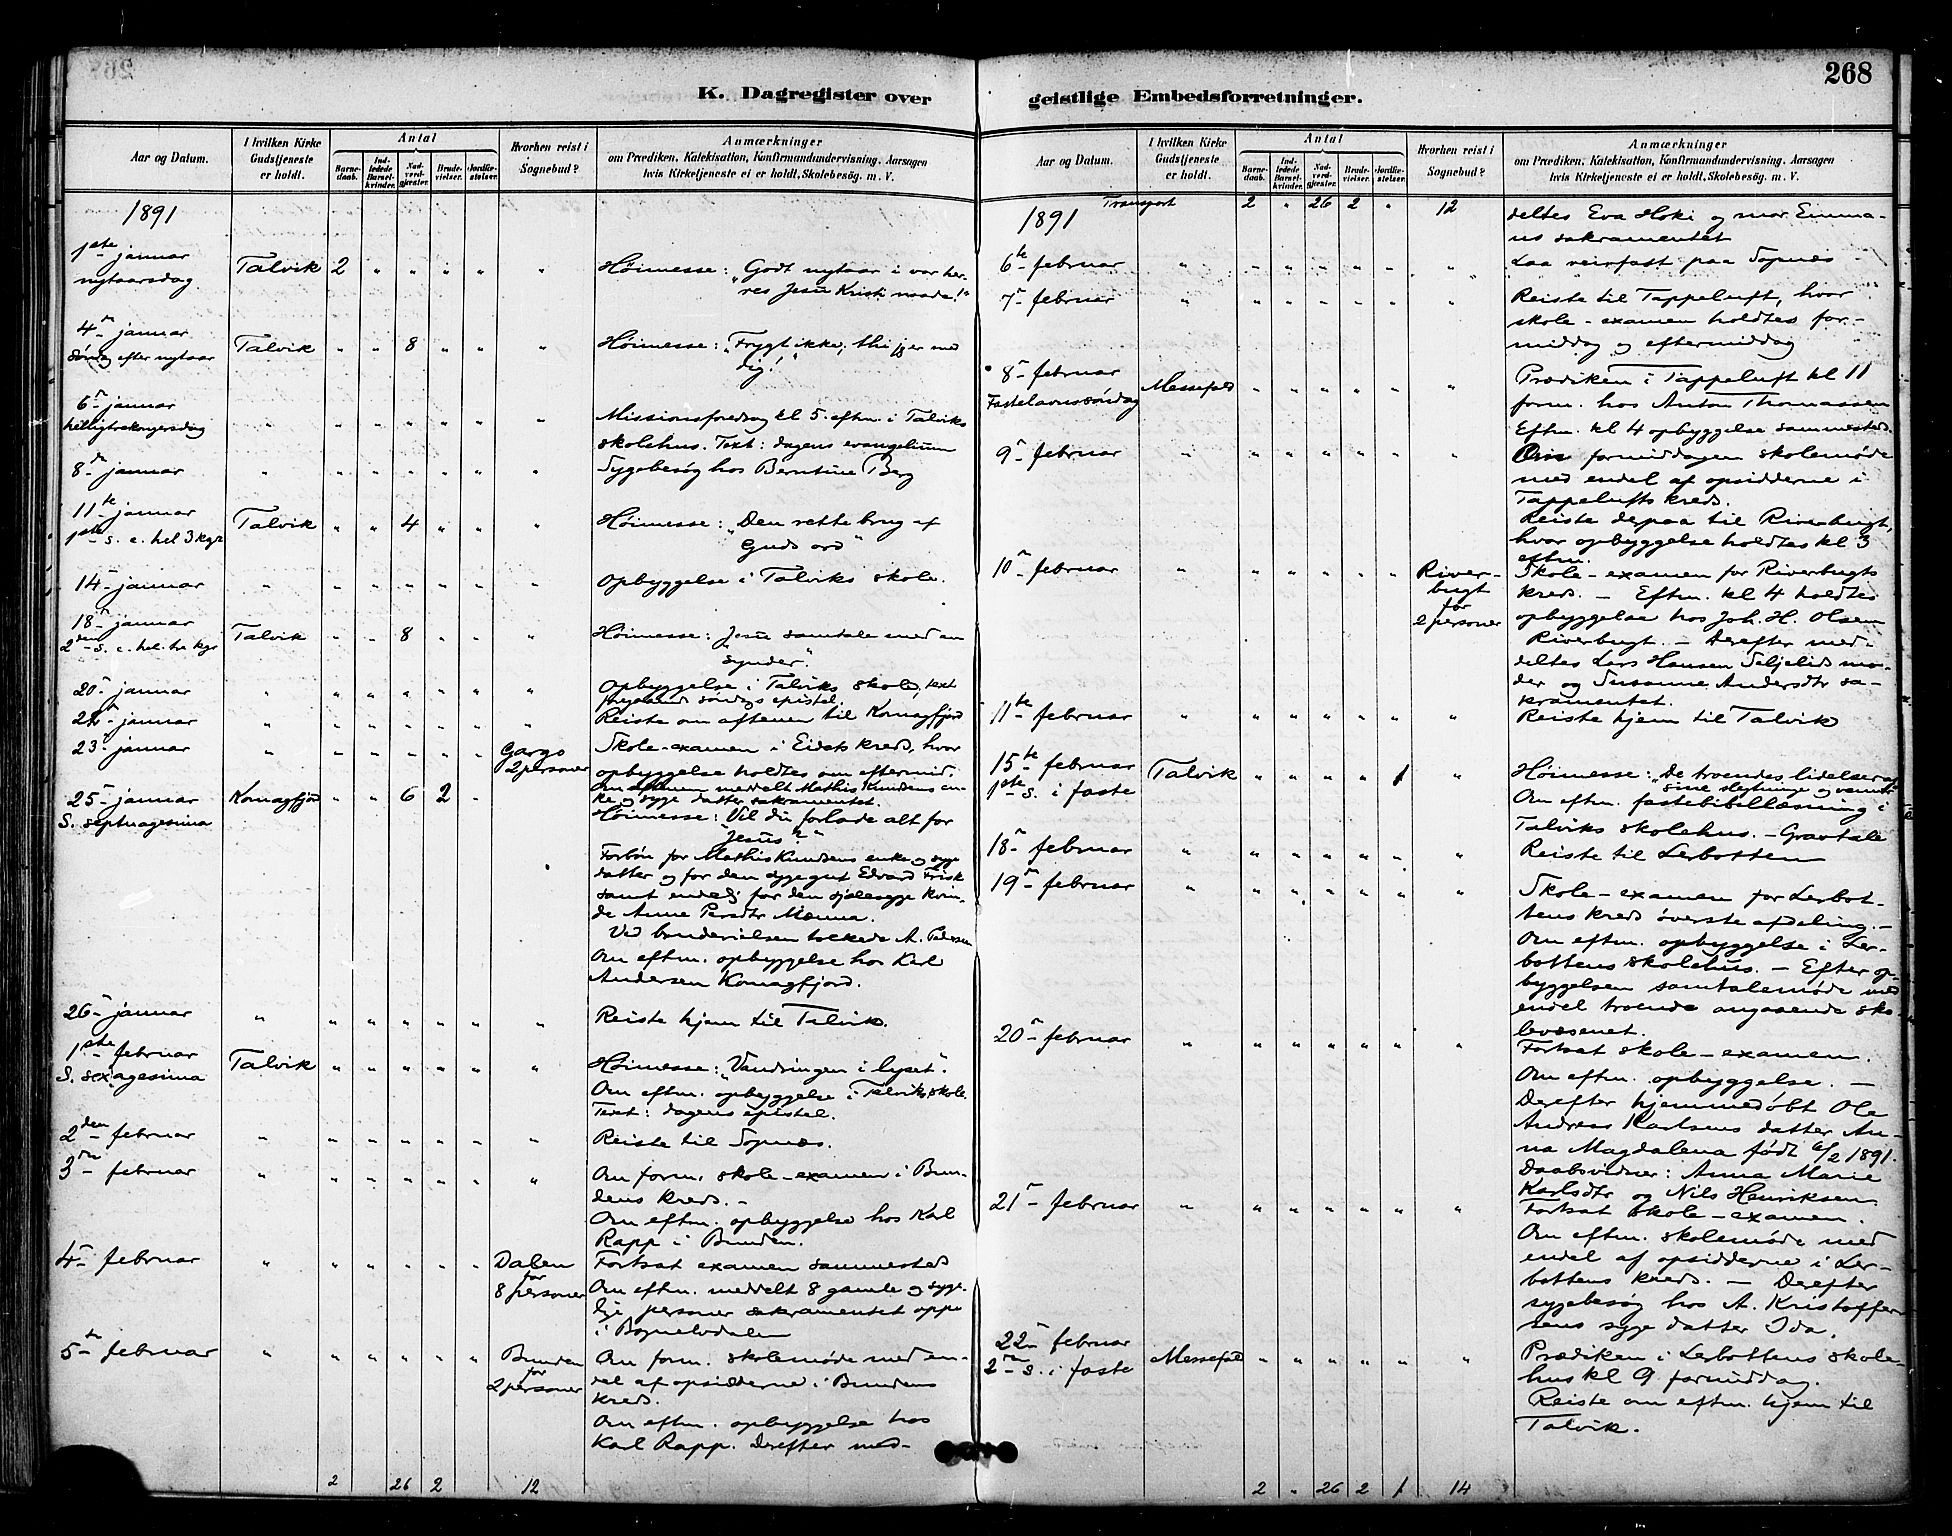 268
K. Dagregister over geistlige Embedsforretninger.
Aar og Datum.
I hvilken Kirke Gudstjeneste er holdt.
Antal
Barne-daab.
Ind-ledede Barsel-kvinder.
Nad-verd-gjæster.
Brude-vielser.
Jordfæ-stelser.
Hvorhen reist i Sognebud?
Anmærkninger
om Prædiken, Katekisation, Konfirmandundervisning, Aarsagen
hvis Kirketjeneste ei er holdt, Skolebesøg. m. V.
1891
1ste januar nytaarsdag Talvik 2 " " " " " Høimesse: "Godt nytaar i vor her-
res Jesu Kristi naade!"
4de januar Søndag efter nytaar Talvik " " 8 " " " Høimesse: "Frygt ikke, thi jeg er med
dig!"
6te januar helligtrekongersdag " " " " " " " Missionsforedrag kl 5 eftm. i Talviks
skolehus. Text: dagens evangelium
8de januar " " " " " " " Sygebesøg hos Berntine Berg
11te januar 1ste s. e. hel 3 kgr Talvik " " 4 " " " Høimesse: "Den rette brug af
Guds ord"
14- januar " " " " " " " Opbyggelse i Talviks skole.
18- januar 2den s. e. hel. tre kgr Talvik " " 8 " " " Høimesse: "Jesu samtale med en
synder."
20- januar " " " " " " " Opbyggelse i Talviks skole, text
foregaaende søndags epistel.
22- januar " " " " " " " Reiste om aftenen til Komagfjord
23- januar " " " " " " Gargo 2 personer Skole-examen i Eidets kreds, hvor
opbyggelse holdtes om eftermid.
Om aftenen meddelt Mathis Knudsens en-
ke og syge datter sakramentet.
25- januar S. septuagesima Komagfjord " " 6 2 " Høimesse: "Vil du forlade alt for
Jesus?"
Forbøn for Mathis Knudsens enke og syge
datter og for den syge gut Edvard Frisk
samt endelig for den sjælesyge kvin-
de Anne Persdtr Mænna.
Ved brudevielsen tolkede A. Pedersen
Om eftm. opbyggelse hos Karl
Andersen Komagfjord.
26- januar " " " " " " " Reiste hjem til Talvik.
1ste februar S. sexagesima Talvik " " " " " " Høimesse: "Vandringen i lyset".
Om eftm. opbyggelse i Talvik skole.
Text: dagens epistel.
2den februar " " " " " " " Reiste til Sopnes.
3die februar " " " " " " " Om form. skole-examen i Bun-
dens kreds. -
Om eftm. opbyggelse hos Karl
Rapp i Bunden.
4- februar " " " " " " Dalen for 8 personer Fortsat examen sammesteds
Om eftm. meddelt 8 gamle og syge-
lige personer sakramentet oppe
i Bognelvdalen
5te februar " " " " " " Bunden for 2 personer Om form. skolemøde med en-
del af opsidderne i Bundens
kreds.
Om eftm. opbyggelse hos
Karl Rapp. Derefter med-
2 26 2 12
Aar og Datum.
I hvilken Kirke Gudstjeneste er holdt.
Antal
Barne-daab.
Ind-ledede Barsel-kvinder.
Nad-verd-gjæster.
Brude-vielser.
Jordfæ-stelser.
Hvorhen reist i Sognebud?
Anmærkninger
om Prædiken, Katekisation, Konfirmandundervisning, Aarsagen
hvis Kirketjeneste ei er holdt, Skolebesøg. m. V.
1891 Transport 2 " 26 2 " 12 deltes Eva Hoki og mor Emma-
us sakramentet
6te februar " " " " " " " Laa veirfast paa Sopnes -
7- februar " " " " " " " Reiste til Tappeluft, hvor
skole-examen holdtes for-
middag og eftermiddag
8- februar Fastelavnssøndag Messefald " " " " " " Prædiken i Tappeluft kl 11
form. hos Anton Thomassen
Eftm. kl 4 opbyggelse sammesteds.
9- februar " " " " " " " Om formiddagen skolemøde
med endel af opsidderne i
Tappelufts kreds.
Reiste depaa til Riverbugt,
hvor opbyggelse holdtes kl 3
eftm.
10- februar " " " " " " River-bugt for 2 personer Skole-examen for Riverbugts
kreds. - Eftm. kl 4 holdtes
opbyggelse hos Joh. H. Olsen
Riverbugt. - Derefter med-
deltes Lars Hansen Seljelids mo-
der og Susanne Andersdtr sa-
kramentet.
11te februar " " " " " " " Reiste hjem til Talvik
15te februar 1ste s. i faste Talvik " " " " 1 " Høimesse: "De troendes lidelser af
sine slegtninge og venner"
Om eftm. fastebibellæsning i
Talviks skolehus. - Gravtale
18- februar " " " " " " " Reiste til Lerbotten
19- februar " " " " " " " Skole-examen for Lerbot-
tens kreds øverste afdeling. -
Om eftm. opbyggelse i Ler-
bottens skolehus. - Efter op-
byggelsen samtalemøde med
endel troende angaaende sko-
levæsenet.
20- februar " " " " " " " Fortsat skole-examen.
Om eftm. opbyggelse. -
Derefter hjemmedøbt Ole
Andreas Karlsens datter An-
na Magdalena født 6/2 1891.
Daabsvidner: Anna Marie
Karlsdtr og Nils Henriksen
21- februar " " " " " " " Fortsat skole-examen.
Om eftm. skolemøde med
endel af opsidderne i Ler-
bottens kreds. - Derefter
sygebesøg hos A. Kristoffer
sens syge datter Ida.
22- februar 2den s. i faste Messefald " " " " " " Prædiken i Lerbottens skole-
hus kl 9 formiddag.
Reiste om eftm. hjem til
Talvik.
2 " 26 2 1 14